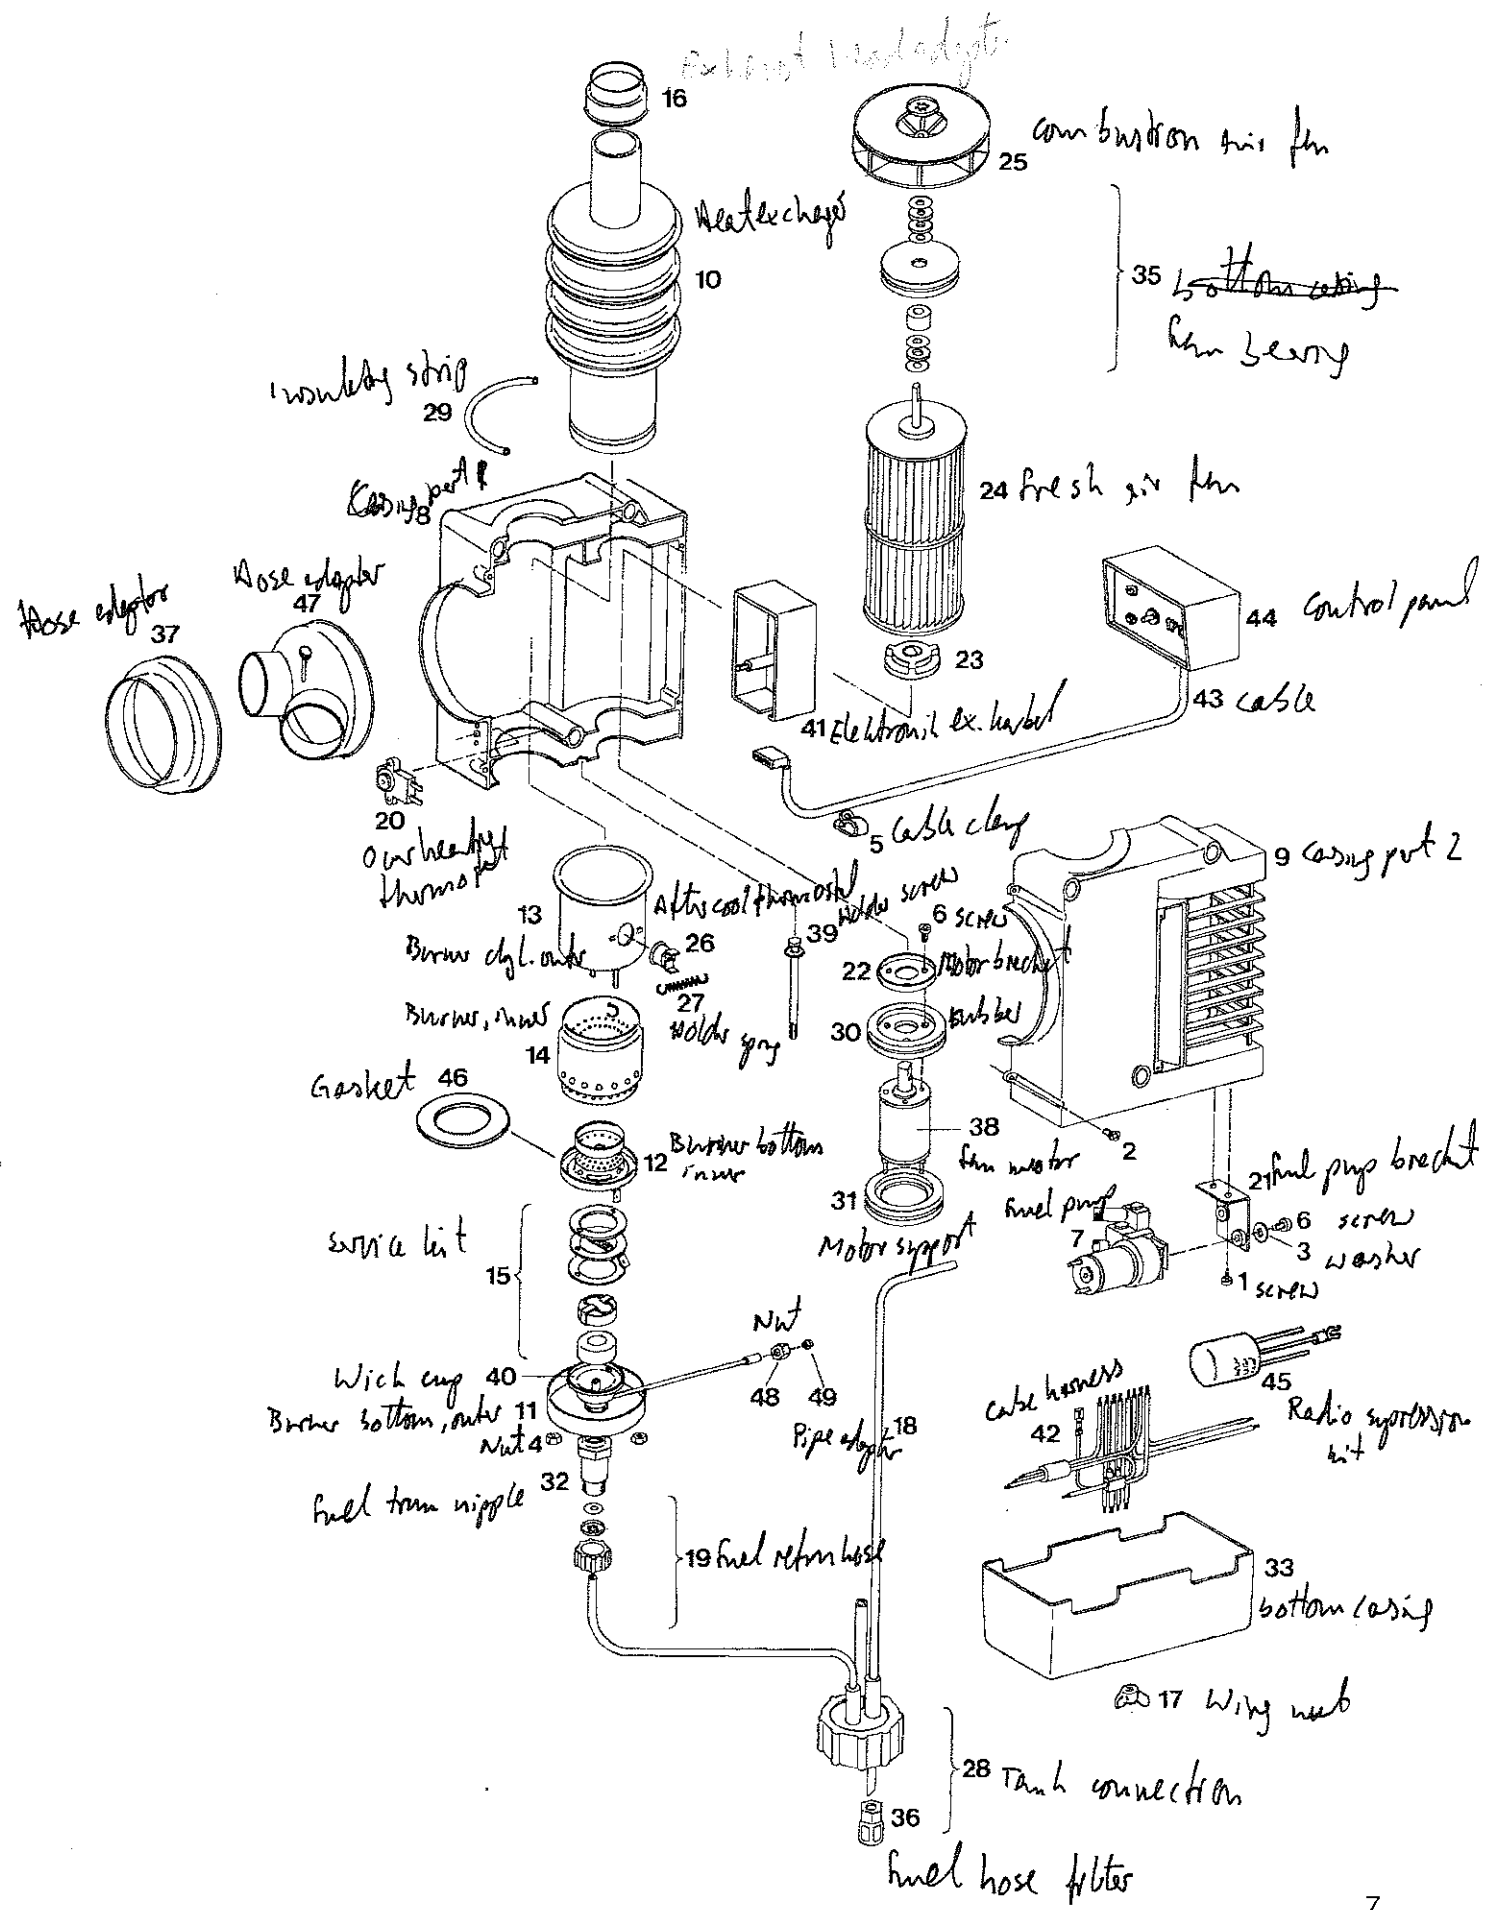 Exhaust head adapter
16
25 combustion air fan
Heatexchager
10
35 bottom casing
fan bearing
insulating strip
29
Casing part 1
8
24 fresh air fan
Hose adaptor
37
Hose adapter
47
44 control panel
23
43 cable
41 Elektronik ex. kabel
20
Overheating
thermostat
5 Cable clamp
9 Casing part 2
13
Burner cyl. outer
After cool thermostat
26
39 Holder screw
6 screw
22 Motor bracket
27
Holder spring
Burner, inner
14
30 Rubber
Gasket 46
12 Burner bottom
inner
38
fan motor
2
31
Motor support
21 fuel pump bracket
Fuel pump
7
6 screw
3 washer
1 screw
Service kit
15
Nut
48 49
Wick cup 40
Burner bottom, outer 11
Nut 4
32
Fuel tram nipple
Pipe adapter 18
cable harness
42
45
Radio supression
kit
19 fuel return hose
33
bottom casing
17 Wing nut
28 Tank connection
36
fuel hose filter
7